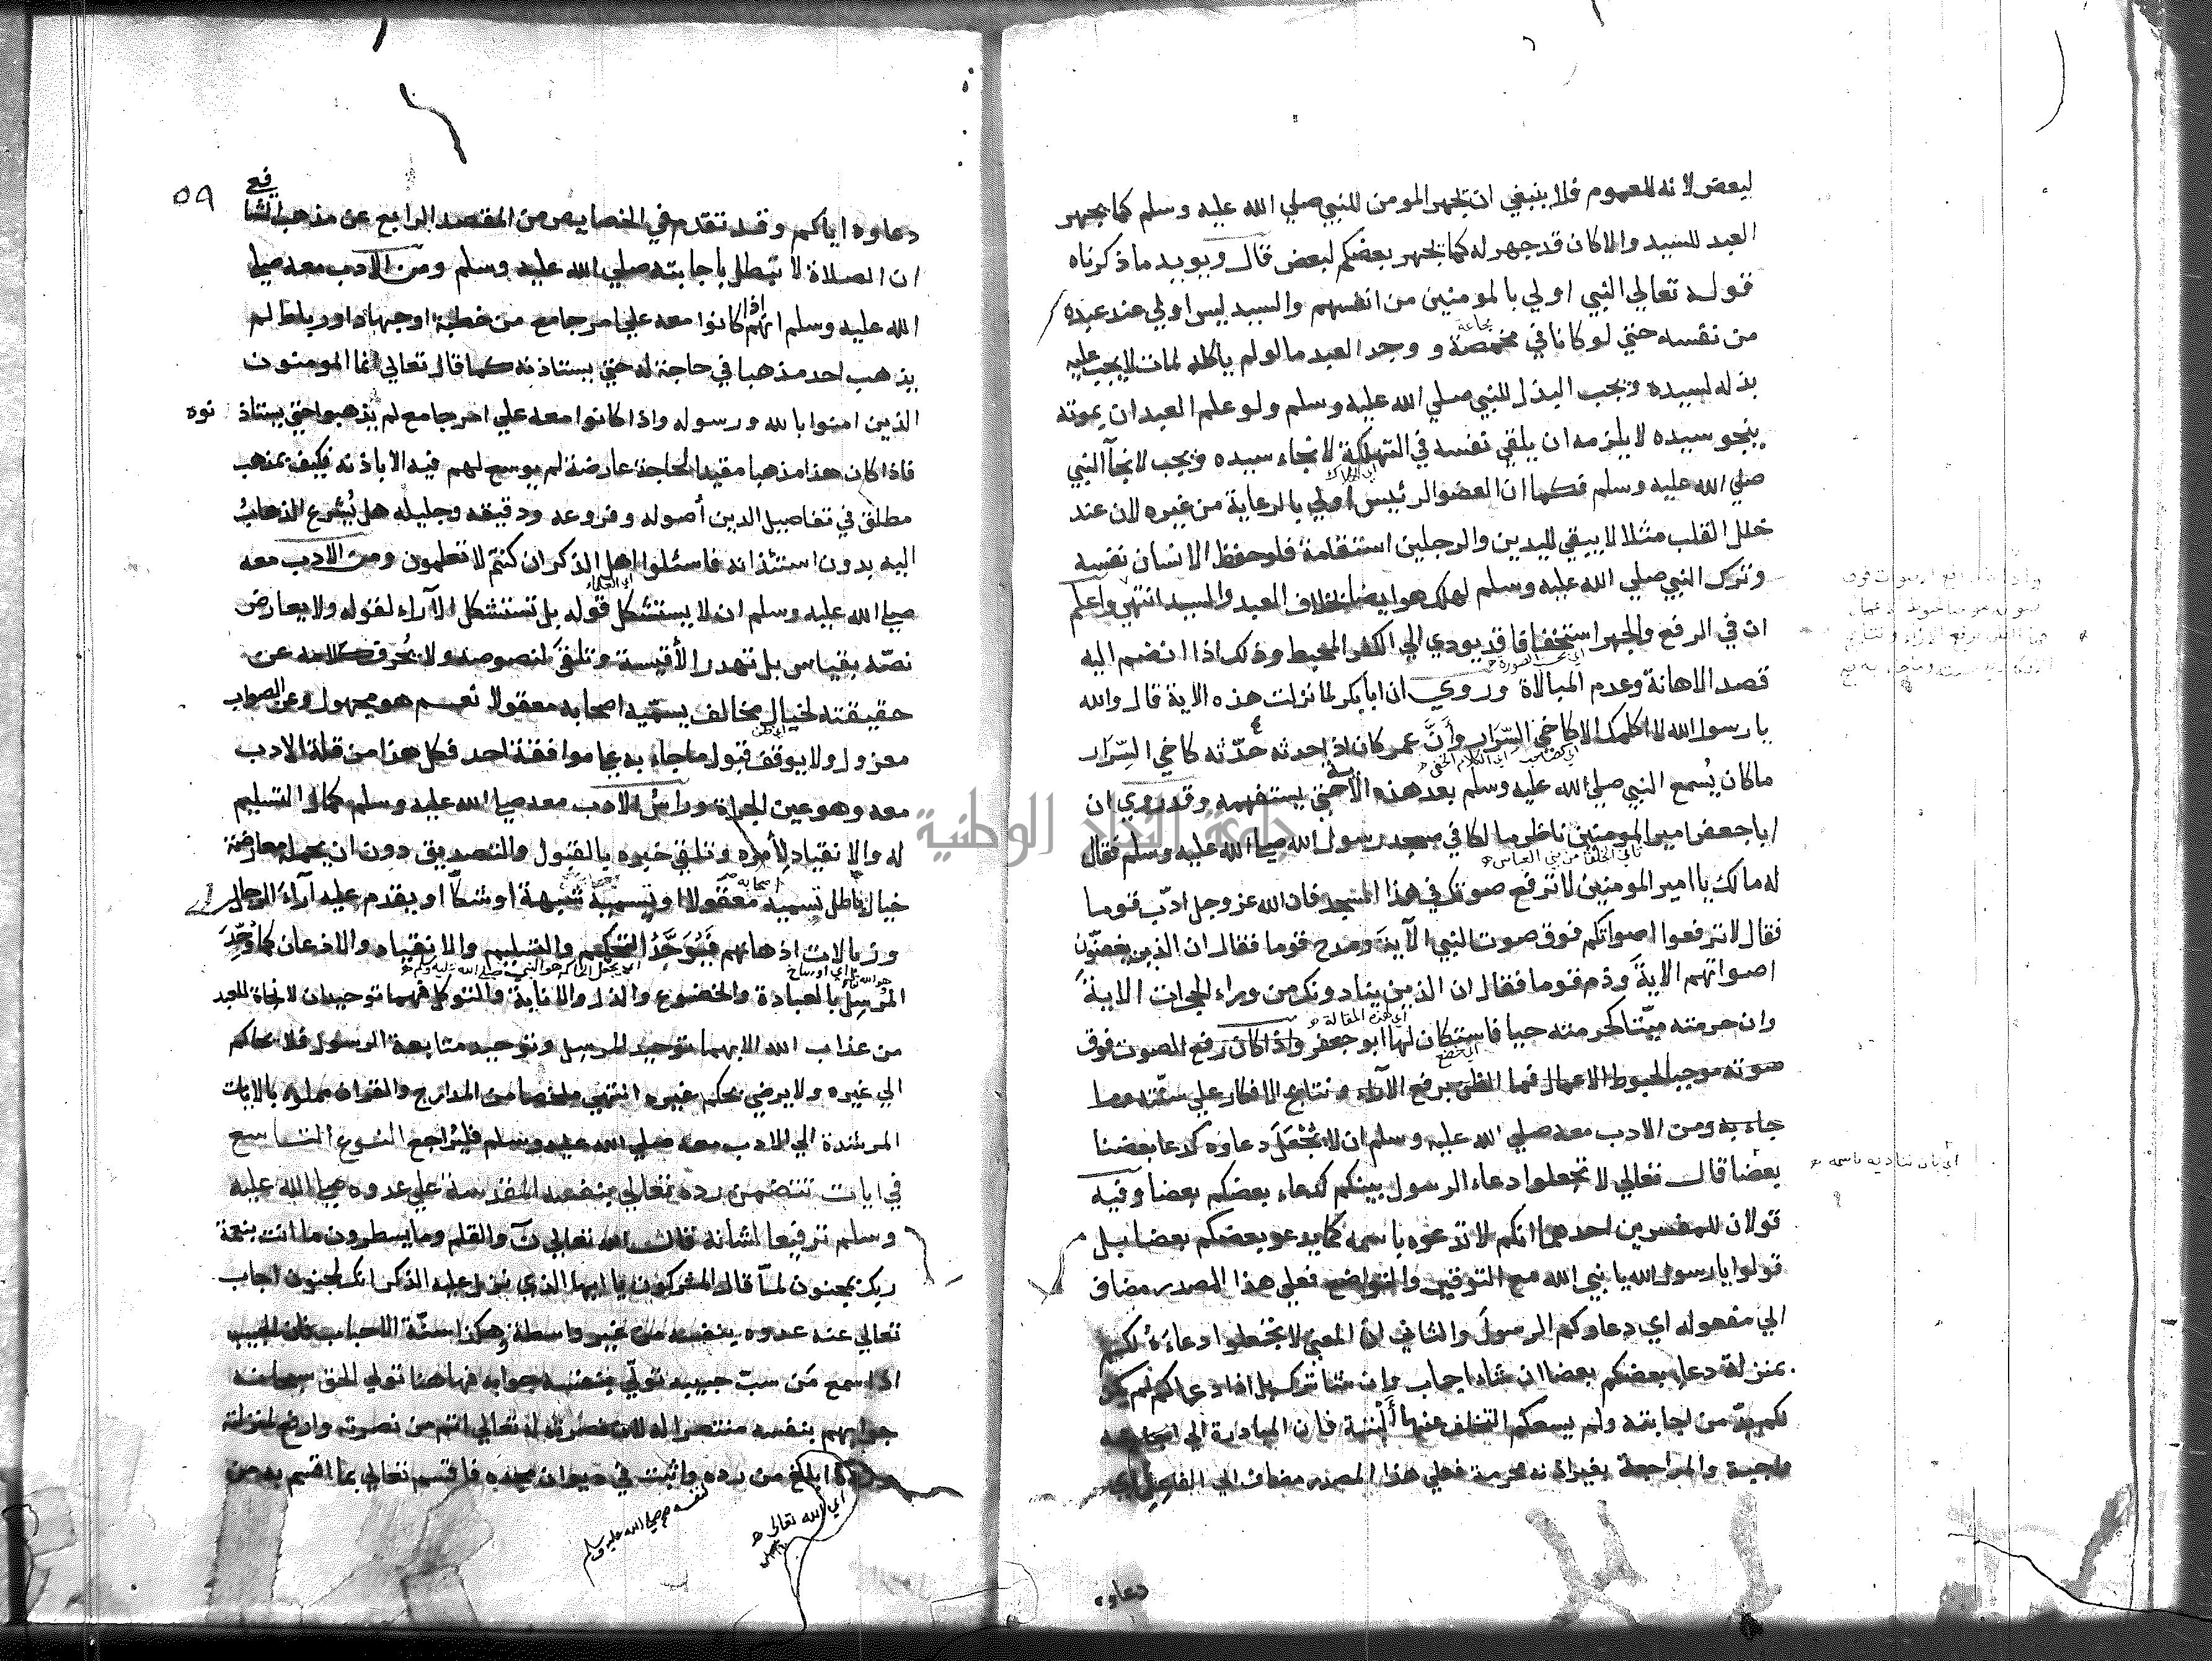 لبعض لانه للعموم فلا ينبغي ان يجهر المومن للنبي صلي الله عليه وسلم كما يجهر
العبد للسيد والا كان قد جهر له كما يجهر بعضكم لبعض قال ويويد ما ذكرناه
قوله تعالي النبي اولي بالمومنين من انفسهم والسيد ليس اولي عند عبده
من نفسه حتي لو كانا في مخمصة و وجد العبد ما لو لم ياكله لمات لا يجب عليه
مجاعة
بذله لسيده ويجب البذل للنبي صلي الله عليه وسلم ولو علم العبد ان بموته
ينجو سيده لا يلزمه ان يلقي نفسه في التهلكة لانجاء سيده ويجب لانجآ النبي
اي الهلاك
صلي الله عليه وسلم فكما ان العضو الرئيس اولي بالرعاية من غيره لان عند
خلل القلب مثلا لا يبقي لليدين والرجلين استقامة فلو حفظ الانسان نفسه
وترك النبي صلي الله عليه وسلم لهلك هو ايضا بخلاف العبد والسيد انتهي واعلم
ان في الرفع والجهر استخفافا قد يودي الي الكفر المحبط وذلك اذا انضم اليه
اي بحسب الصورة
قصد الاهانة وعدم المبالاة وروي ان ابا بكر لما نزلت هذه الاية قال والله
يا رسول الله لا اكلمك الا كاخي السِّرَار وأنَّ عمر كان اذا حدثه حدّثه كاخي السِّرَار
اي كصاحب اي الكلام الخفي
ما كان يُسمع النبي صلي الله عليه وسلم بعد هذه الآية حتي يستفهمه وقد روي ان
ابا جعفر امير المومنين ناظر مالكا في مسجد رسول الله صلي الله عليه وسلم فقال
ثاني الخلفا من بني العباس
له مالك يا امير المومنين لا ترفع صوتك في هذا المسجد فان الله عز وجل ادّب قوما
فقال لا ترفعوا اصواتكم فوق صوت النبي الآيةَ ومدح قوما فقال ان الذين يغضّون
اصواتهم الايةَ وذم قوما فقال ان الذين ينادونك من وراء الحجرات الايةَ
وان حرمته ميّتا كحرمته حيا فاستكان لها ابو جعفر واذا كان رفع الصوت فوق
اي هذه المقالة
اي خضع
صوته موجبا لحبوط الاعمال فما الظن برفع الآراء ونتايج الافكار علي سنته وما
جاء به ومن الادب معه صلي الله عليه وسلم ان لا تُجْعَلَ دعاوه كدعا بعضنا
بعضا قال تعالي لا تجعلوا دعاء الرسول بينكم كدعاء بعضكم بعضا وفيه
اي بان تناديه باسمه
قولان للمفسرين احدهما انكم لا تدعوه باسمه كما يدعو بعضكم بعضا بل
قولوا يا رسول الله يا نبي الله مع التوقير والتواضع فعلي هذا المصدر مضاف
الي مفعوله اي دعاوكم الرسولَ والثاني ان المعني لا تجعلوا دعاءَهُ لكم
بمنزلة دعاء بعضكم بعضا ان شاء اجاب وان شا ترك بل اذا دعاكم لم يكن
لكم بدّ من اجابته ولم يسعكم التخلف عنها ألبتة فان المبادرة الي اجابته
واجبة والمراجعة بغير اذنه محرمة فعلي هذا المصدر مضاف الي الفاعل اي
دعاوه
٥٩
دعاوه اياكم وقد تقدم في الخصايص من المقصد الرابع عن مذهب الشافعي
ان الصلاة لا تبطل باجابته صلي الله عليه وسلم ومن الادب معه صلي
الله عليه وسلم انهم اذا كانوا معه علي امر جامع من خطبة او جهاد او رباط لم
يذهب احد مذهبا في حاجة له حتي يستاذنه كما قال تعالي انما المومنون
الذين امنوا بالله ورسوله واذا كانوا معه علي امر جامع لم يذهبوا حتي يستاذنوه
فاذا كان هذا مذهبا مقيدا لحاجة عارضة لم يوسع لهم فيه الا باذنه فكيف بمذهب
مطلق في تفاصيل الدين أصوله وفروعه ودقيقه وجليله هل يُشْرع الذهابُ
اليه بدون استئذانه فاسئلوا اهل الذكر ان كنتم لا تعلمون ومن الادب معه
اي العلماء
صلي الله عليه وسلم ان لا يستشكل قوله بل تستشكل الآراء لقوله ولا يعارض
نصّه بقياس بل تهدر الأقيسة وتلقي لنصوصه ولا يُحرف كلامه عن
حقيقته لخيال مخالف يسمّيه اصحابه معقولا نعم هو مجهول وعن الصواب
معزول ولا يوقف قبول ما جاء به علي موافقة احد فكل هذا من قلة الادب
معه وهو عين الجراة وراسُ الادب معه صلي الله عليه وسلم كمال التسليم
له والانقياد لأمره وتلقي خبره بالقبول والتصديق دون ان يحمله معارضة
خيال باطل تسميه معقولا او تسميه شبهة او شكا او يقدم عليه آراءَ الرجال
اصحابه
وزبالات اذهانهم فَيُوَحِّدُ التحكيم والتسليم والانقياد والاذعان كما وَحَّدَ
اي اوساخ
المُرسِلَ بالعبادة والخضوع والذل والانابة والتوكل فهما توحيدان لا نجاة للعبد
من عذاب الله الا بهما توحيد المرسِل وتوحيد متابعة الرسول فلا يحاكم
الي غيره ولا يرضي بحكم غيره انتهي ملخصا من المدارج والقران مملوء بالايات
المرشدة الي الادب معه صلي الله عليه وسلم فليُراجع النوع التاسع
في ايات تتضمن رده تعالي بنفسه المقدسة علي عدوه صلي الله عليه
وسلم ترفيعا لشانه قال الله تعالي نٓ والقلم وما يسطرون ما انت بنعمة
ربك بمجنون لمّا قال المشركون يا ايها الذي نزل عليه الذكر انك لمجنون اجاب
تعالي عنه عدوه بنفسه من غير واسطة وهكذا سنّة الاحباب فان الحبيب
اذا سمع مَن سبّ حبيبه تولّي بنفسه جوابه فهاهنا تولي الحق سبحانه
جوابهم بنفسه منتصرا له لان نصرته له تعالي اتم من نصرته وارفع لمنزلته
ورده ابلغ من رده واثبت في ديوان مجده فاقسم تعالي بما اقسم به من
اي الله تعالي
لنفسه صلي الله عليه وسلم
جامعة النجاح الوطنية